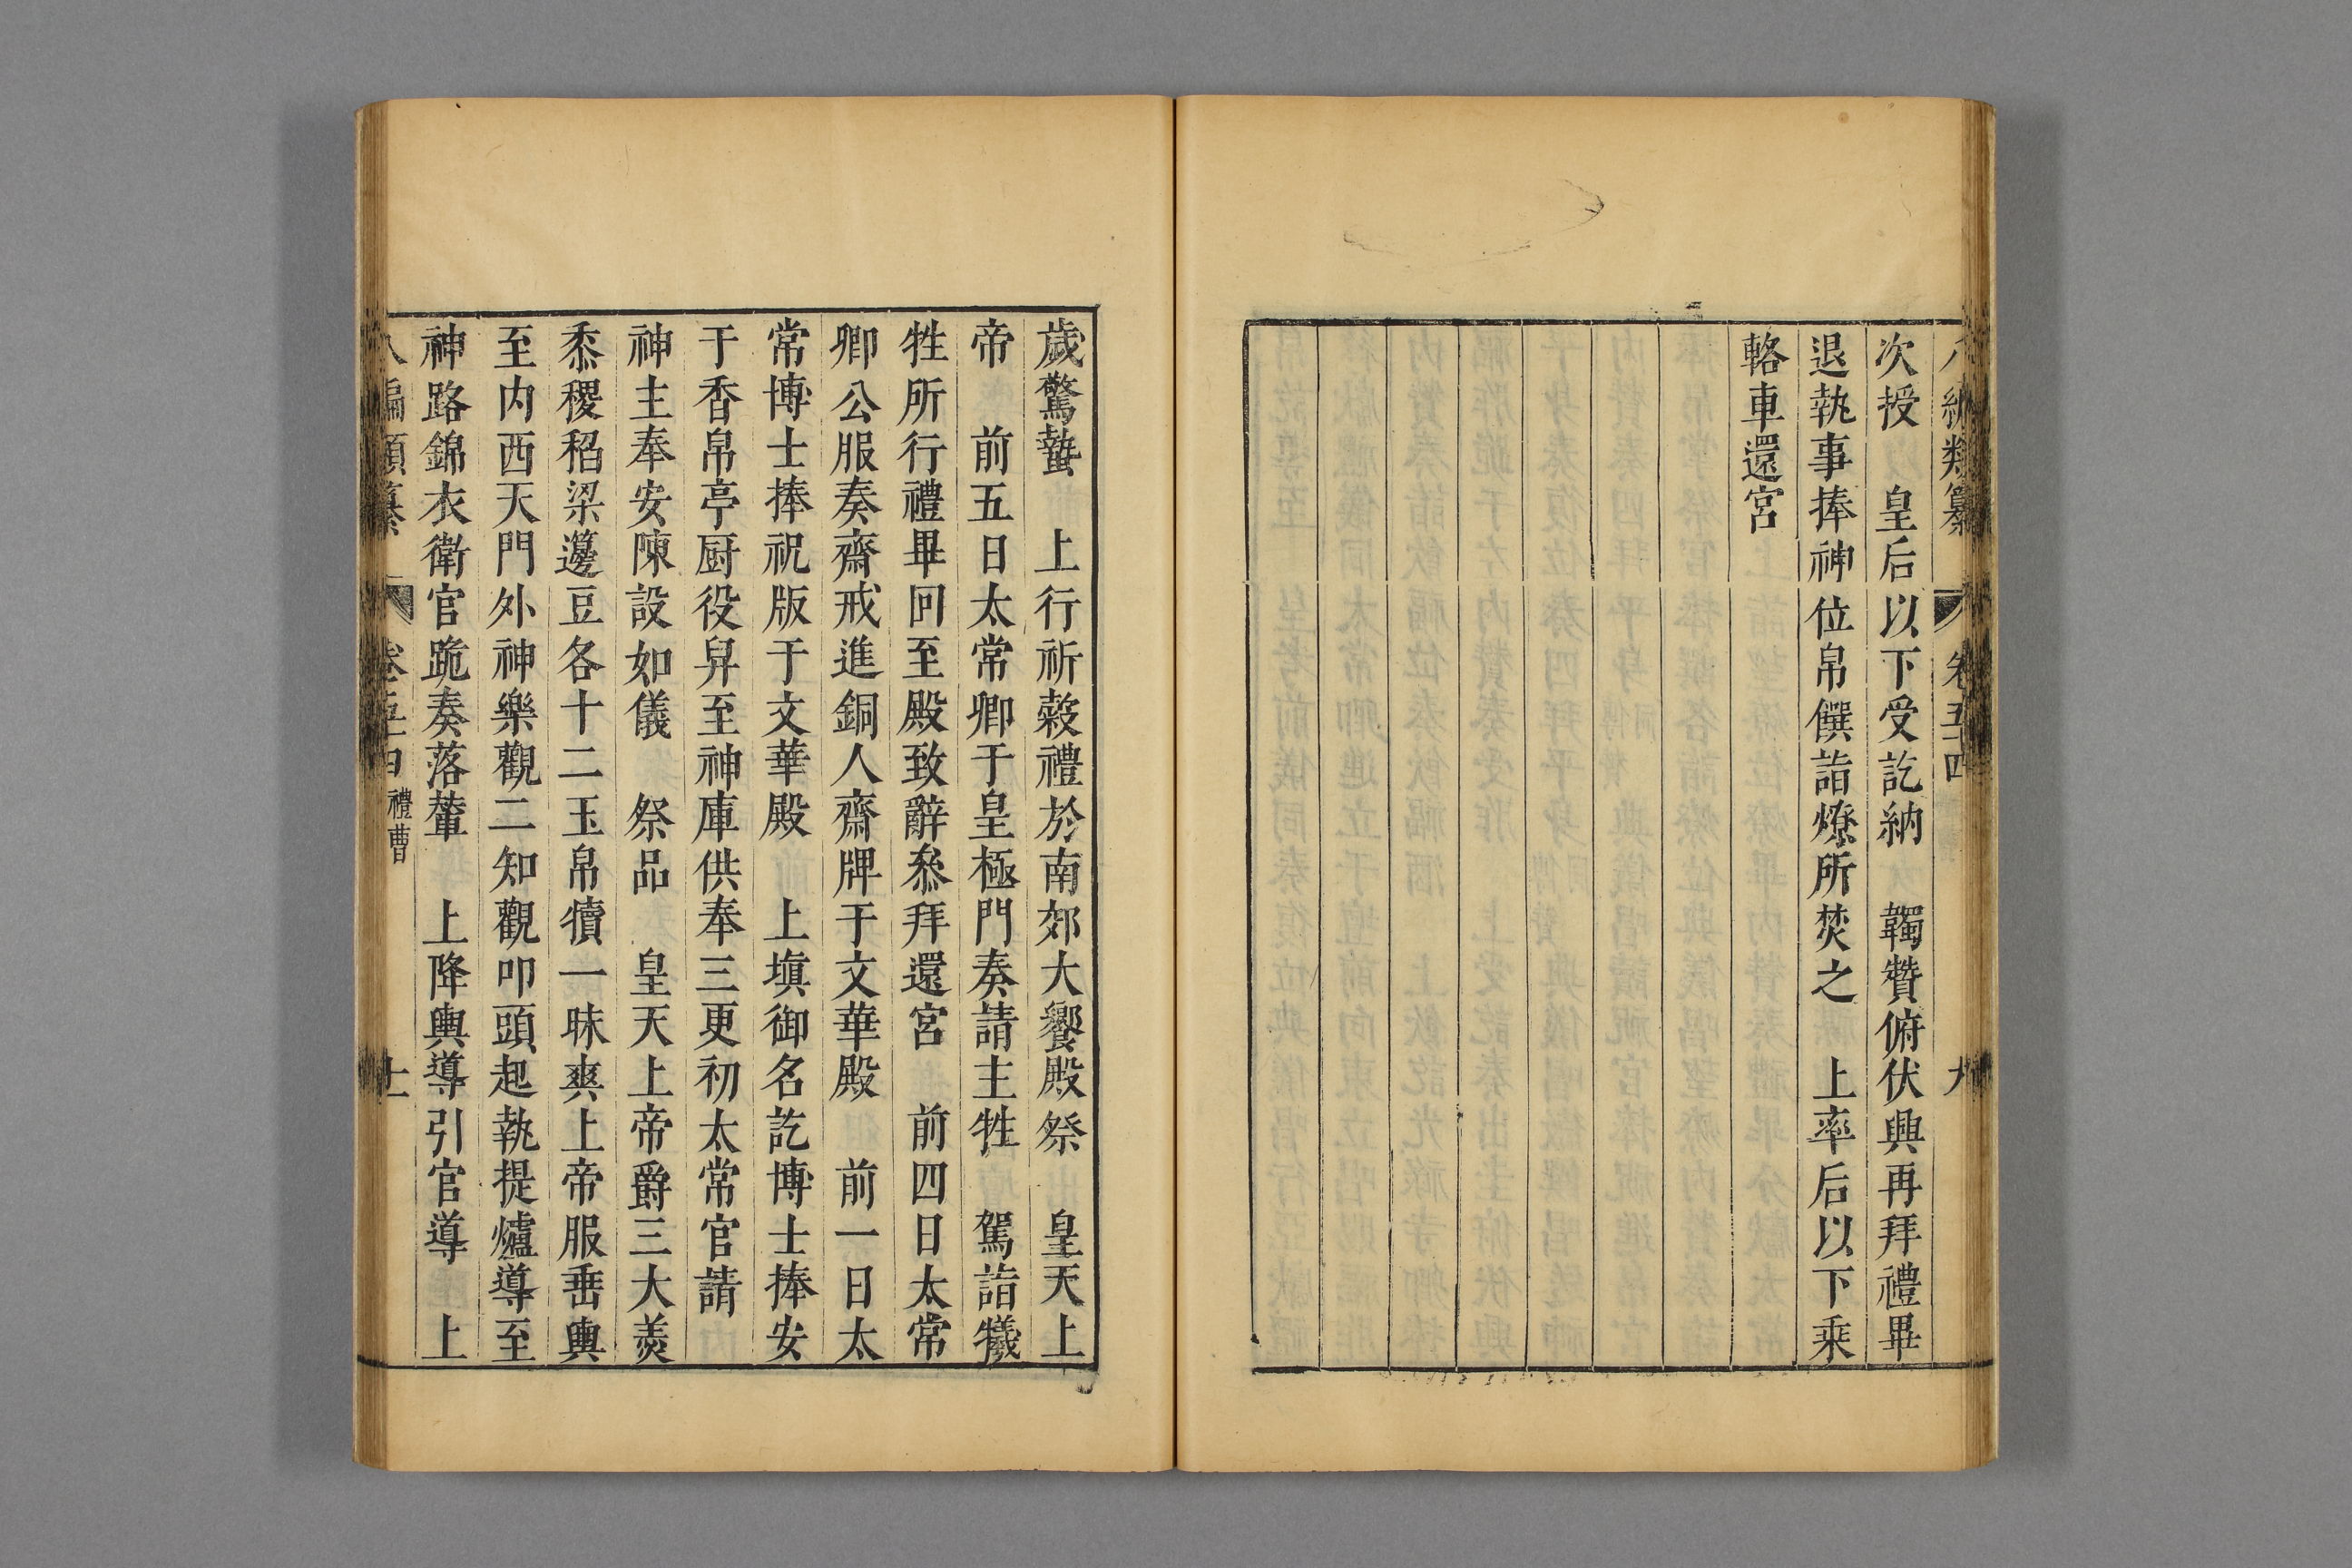 八編類纂 卷五十四 九
次授 皇后以下受訖納 韣贊俯伏興再拜禮畢
退執事捧神位帛饌詣燎所焚之 上率后以下乘
輅車還宮
歲驚蟄 上行祈穀禮於南郊大饗殿祭 皇天上
帝 前五日太常卿于皇極門奏請主牲 駕詣犧
牲所行禮畢回至殿致辭叅拜還宮 前四日太常
卿公服奏齋戒進銅人齋牌于文華殿 前一日太
常博士捧祝版于文華殿 上填御名訖博士捧安
于香帛亭厨役舁至神庫供奉三更初太常官請
神主奉安陳設如儀 祭品 皇天上帝爵三大羮
黍稷稻梁籩豆各十二玉帛犢一昧爽上帝服乗輿
至内西天門外神樂觀二知觀叩頭起執提爐導至
神路錦衣衛官跪奏落輦 上降輿導引官導 上
八編類纂 卷五十四 禮曹 十